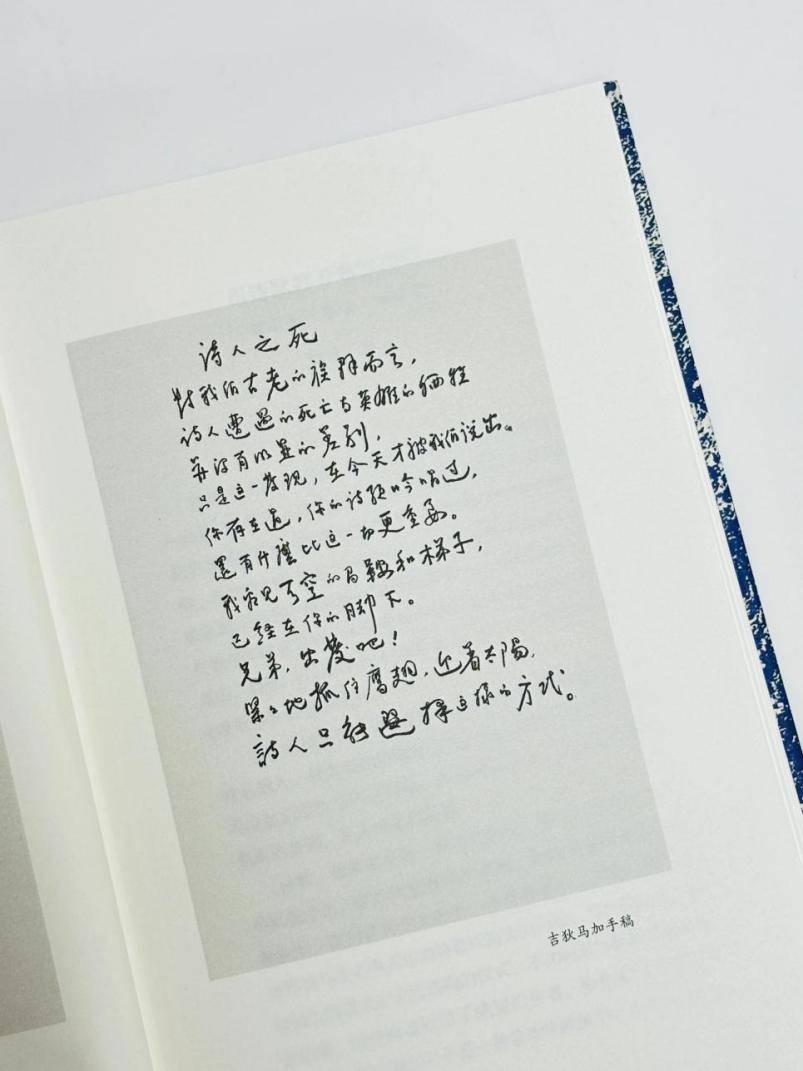 诗人之死
对我们古老的族群而言，
诗人遭遇的死亡与英雄的牺牲
并没有明显的差别，
只是这一发现，在今天才被我们说出。
你存在过，你的诗颂吟唱过，
还有什麼比这一切更重要。
我看见天空的马鞍和梯子，
已经在你的脚下。
兄弟，出发吧！
紧紧地抓住鹰翅，迎着太陽，
詩人只能選择这样的方式。
吉狄马加手稿